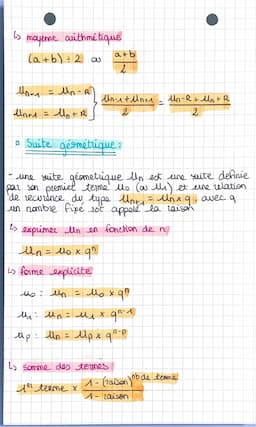 ↳ moyenne arithmétique
(a+b) ÷ 2 ou (a+b)/2
Un-1 = Un - R
Un+1 = Un + R } (Un-1 + Un+1)/2 = (Un - R + Un + R)/2
Suite géométrique :
- une suite géométrique Un est une suite définie
par son premier terme U0 (ou U1) et une relation
de récurrence du type Un+1 = Un x q, avec q
un nombre fixe est appelé la raison
↳ exprimer Un en fonction de n
Un = U0 x qⁿ
↳ forme explicite
U0 : Un = U0 x qⁿ
U1 : Un = U1 x qⁿ⁻¹
Up : Un = Up x qⁿ⁻ᵖ
↳ somme des termes
1er terme x (1 - (raison)^nb de terme)/(1 - raison)